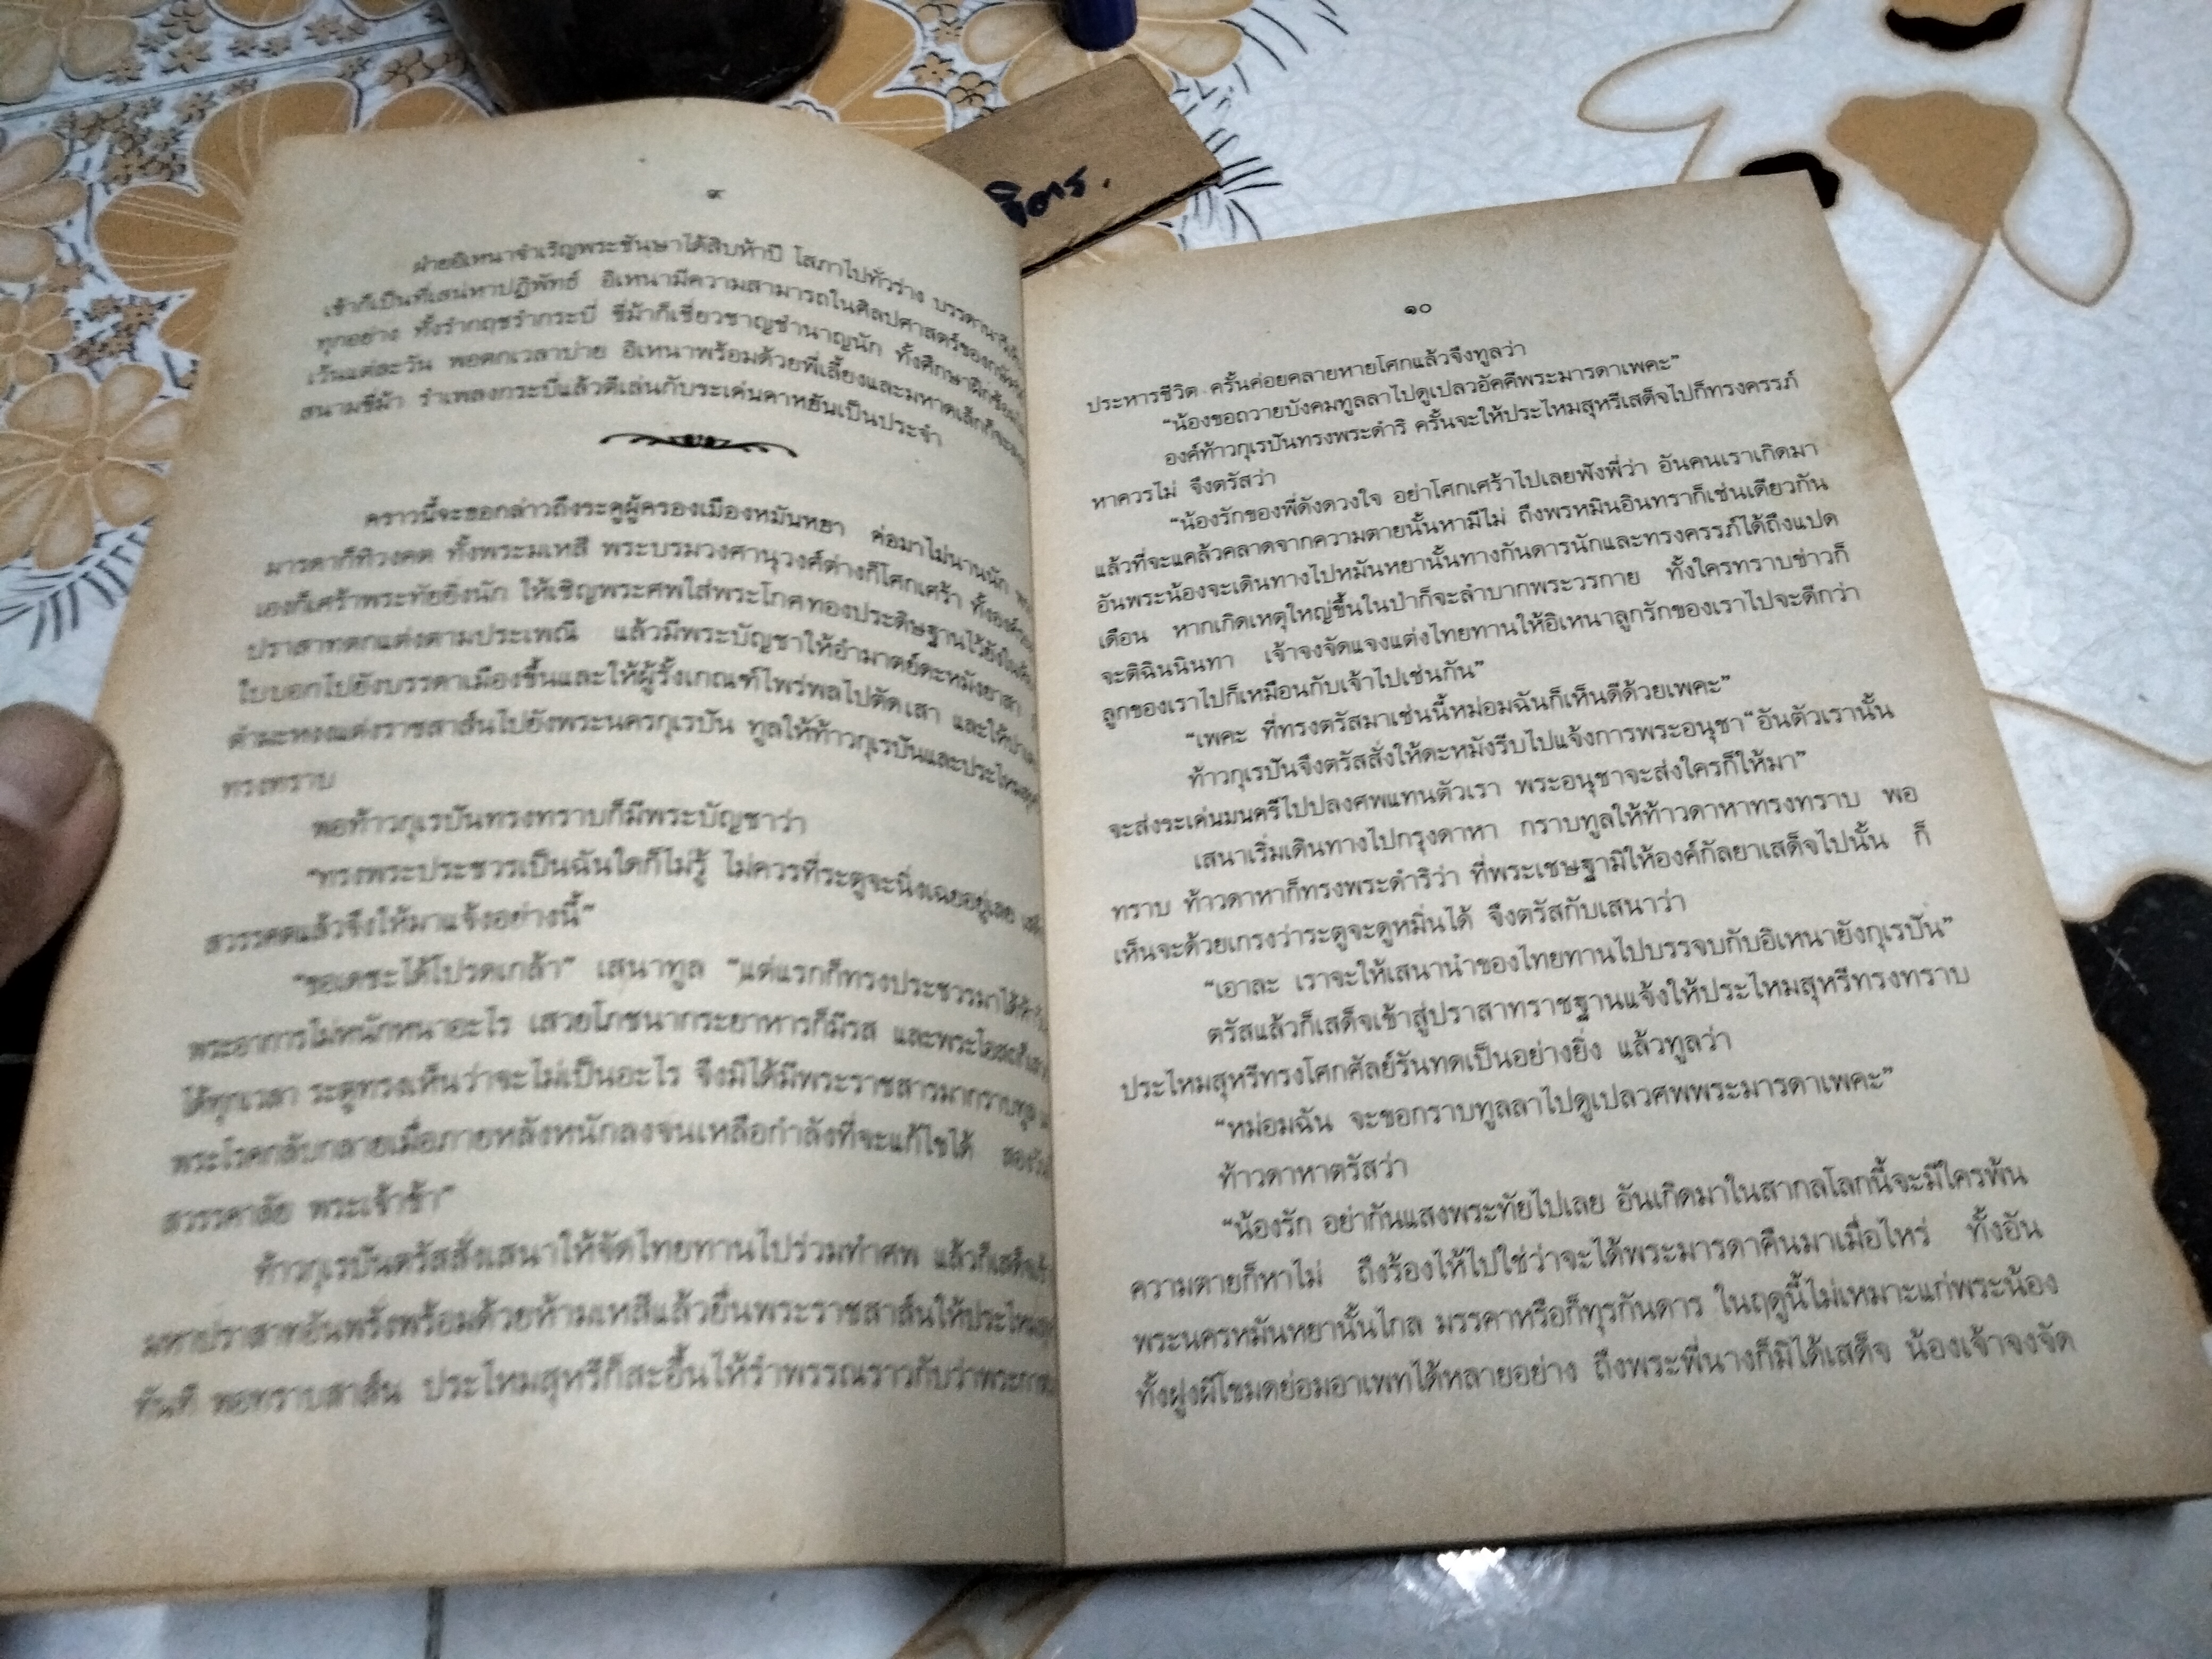 ๙
ฝ่ายอิเหนาจำเริญพระชันษาได้สิบห้าปี โสภาไปทั่วร่าง
เข้าก็เป็นที่เสน่หาปฏิพัทธ์ อิเหนามีความสามารถในศิลปศาสตร์ของกษัตริย์
ทุกอย่าง ทั้งรำกฤชรำกระบี่ ขี่ม้าก็เชี่ยวชาญชำนาญนัก
เว้นแต่ละวัน พอตกเวลาบ่าย อิเหนาพร้อมด้วยพี่เลี้ยงและมหาดเล็กก็
สนามขี่ม้า รำเพลงกระบี่แล้วตีเล่นกับระเด่นดาหยันเป็นประจำ
คราวนี้จะขอกล่าวถึงระตูผู้ครองเมืองหมันหยา ต่อมาไม่นานนัก
มารดาก็ทิวงคต ทั้งพระมเหสี พระบรมวงศานุวงศ์ต่างก็โศกเศร้า
เองก็เศร้าพระทัยยิ่งนัก ให้เชิญพระศพใส่พระโกศทองประดิษฐานไว้
ปราสาทตกแต่งตามประเพณี แล้วมีพระบัญชาให้อำมาตย์ตะหมังยาสา
ใบบอกไปยังบรรดาเมืองขึ้นและให้ผู้รั้งเกณฑ์ไพร่พลไปตัดเสา
ตำมะหงงแต่งราชสาส์นไปยังพระนครกุเรปัน ทูลให้ท้าวกุเรปันและ
ทรงทราบ
พอท้าวกุเรปันทรงทราบก็มีพระบัญชาว่า
“ทรงพระประชวรเป็นฉันใดก็ไม่รู้ ไม่ควรที่ระตูจะนิ่งเฉยอยู่เลย
สวรรคตแล้วจึงให้มาแจ้งอย่างนี้”
“ขอเดชะได้โปรดเกล้า” เสนาทูล “แต่แรกก็ทรงประชวรมาได้
พระอาการไม่หนักหนาอะไร เสวยโภชนากระยาหารก็มีรส
ได้ทุกเวลา ระตูทรงเห็นว่าจะไม่เป็นอะไร จึงมิได้มีพระราชสารมากราบทูล
พระโรคกลับกลายเมื่อภายหลังหนักลงจนเหลือกำลังที่จะแก้ไขได้
สวรรคาลัย พระเจ้าข้า”
ท้าวกุเรปันตรัสสั่งเสนาให้จัดไทยทานไปร่วมทำศพ แล้วก็เสด็จ
มหาปราสาทอันพรั่งพร้อมด้วยห้ามเหสีแล้วยื่นพระราชสาส์นให้
ทันที พอทราบสาส์น ประไหมสุหรีก็สะอื้นไห้รำพรรณราวกับว่า
๑๐
ประหารชีวิต ครั้นค่อยคลายหายโศกแล้วจึงทูลว่า
“น้องขอถวายบังคมทูลลาไปดูเปลวอัคคีพระมารดาเพคะ”
องค์ท้าวกุเรปันทรงพระดำริ ครั้นจะให้ประไหมสุหรีเสด็จไปก็ทรงครรภ์
หาควรไม่ จึงตรัสว่า
“น้องรักของพี่ดังดวงใจ อย่าโศกเศร้าไปเลยฟังพี่ว่า อันคนเราเกิดมา
แล้วที่จะแคล้วคลาดจากความตายนั้นหามีไม่ ถึงพรหมินอินทราก็เช่นเดียวกัน
อันพระน้องจะเดินทางไปหมันหยานั้นทางกันดารนักและทรงครรภ์ได้ถึงแปด
เดือน หากเกิดเหตุใหญ่ขึ้นในป่าก็จะลำบากพระวรกาย ทั้งใครทราบข่าวก็
จะติฉินนินทา เจ้าจงจัดแจงแต่งไทยทานให้อิเหนาลูกรักของเราไปจะดีกว่า
ลูกของเราไปก็เหมือนกับเจ้าไปเช่นกัน”
“เพคะ ที่ทรงตรัสมาเช่นนี้หม่อมฉันก็เห็นดีด้วยเพคะ”
ท้าวกุเรปันจึงตรัสสั่งให้ดะหมังรีบไปแจ้งการพระอนุชา “อันตัวเรานั้น
จะส่งระเด่นมนตรีไปปลงศพแทนตัวเรา พระอนุชาจะส่งใครก็ให้มา”
เสนาเริ่มเดินทางไปกรุงดาหา กราบทูลให้ท้าวดาหาทรงทราบ พอ
ทราบ ท้าวดาหาก็ทรงพระดำริว่า ที่พระเชษฐามิให้องค์กัลยาเสด็จไปนั้น ก็
เห็นจะด้วยเกรงว่าระตูจะดูหมิ่นได้ จึงตรัสกับเสนาว่า
“เอาละ เราจะให้เสนานำของไทยทานไปบรรจบกับอิเหนายังกุเรปัน”
ตรัสแล้วก็เสด็จเข้าสู่ปราสาทราชฐานแจ้งให้ประไหมสุหรีทรงทราบ
ประไหมสุหรีทรงโศกศัลย์รันทดเป็นอย่างยิ่ง แล้วทูลว่า
“หม่อมฉัน จะขอกราบทูลลาไปดูเปลวศพพระมารดาเพคะ”
ท้าวดาหาตรัสว่า
“น้องรัก อย่ากันแสงพระทัยไปเลย อันเกิดมาในสากลโลกนี้จะมีใครพ้น
ความตายก็หาไม่ ถึงร้องไห้ไปใช่ว่าจะได้พระมารดาคืนมาเมื่อไหร่ ทั้งอัน
พระนครหมันหยานั้นไกล มรรคาหรือก็ทุรกันดาร ในฤดูนี้ไม่เหมาะแก่พระน้อง
ทั้งฝูงผีโขมดย่อมอาเพทได้หลายอย่าง ถึงพระพี่นางก็มิได้เสด็จ น้องเจ้าจงจัด